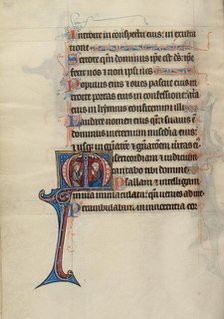 Introite in conspectu eius: in exulta
tione
Scitote q̄m dominus ipse est d̄s: ipse
fecit nos ⁊ non ipsi nos
Populus eius et oues pascue eius in
troite portas eius in confessione: atria
eius in hymnis confitemini illi
Laudate nomen eius q̄m suauis est
dominus in eternum misericordia eius:
Misericordiam et iudicium
cantabo tibi domine
Psallam et intelligam
in uia immaculata: quando uenies ad me
Perambulabam in innocentia cor